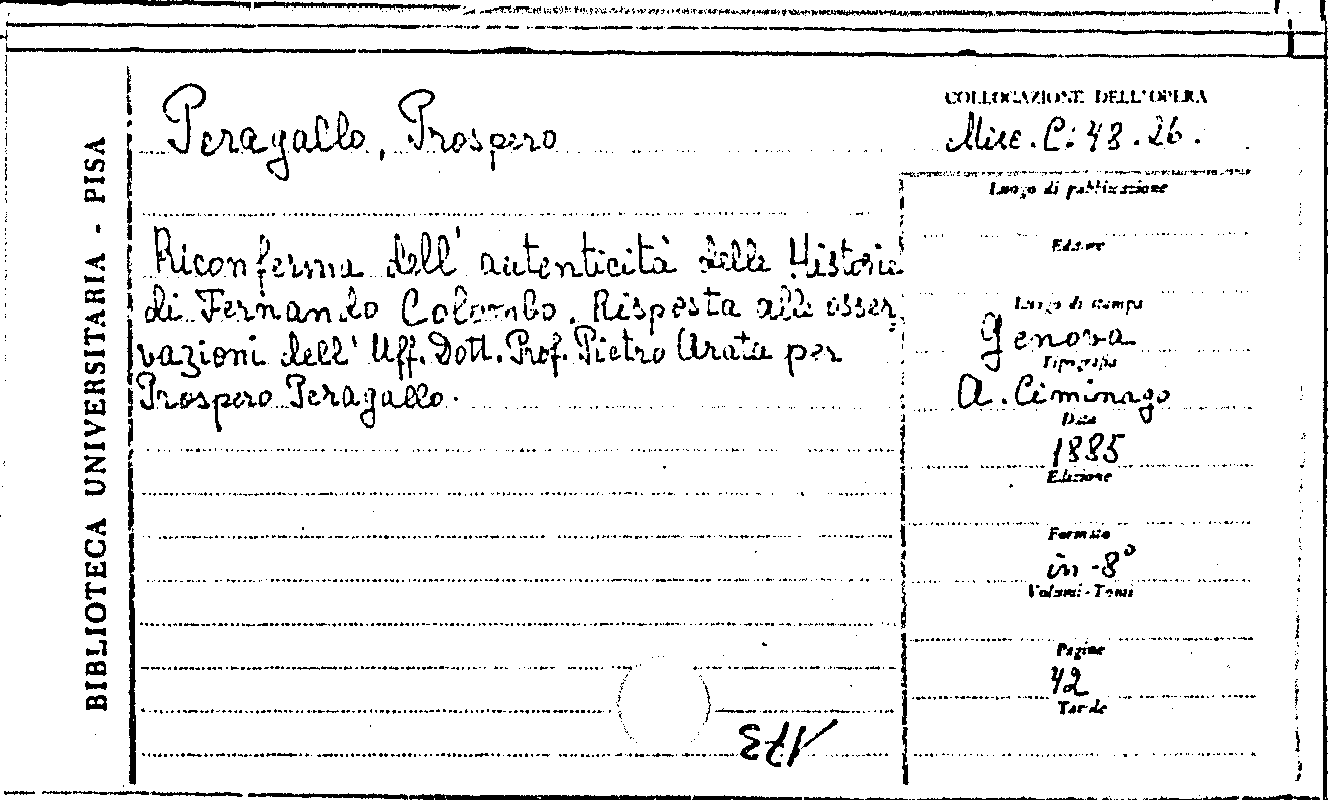 BIBLIOTECA UNIVERSITARIA - PISA
Peragallo, Prospero
Riconferma dell' autenticità delle Historie
di Fernando Colombo. Risposta alle osser,
vazioni dell' Uff. Dott. Prof. Pietro Arata per
Prospero Peragallo.
173
COLLOCAZIONE DELL'OPERA
Misc. C. 48. 26.
Luogo di pubblicazione
Editore
Luogo di stampa
Genova
Tipografia
A. Ciminago
Data
1885
Edizione
Formato
in -8°
Volumi - Tomi
Pagine
42
Tavole